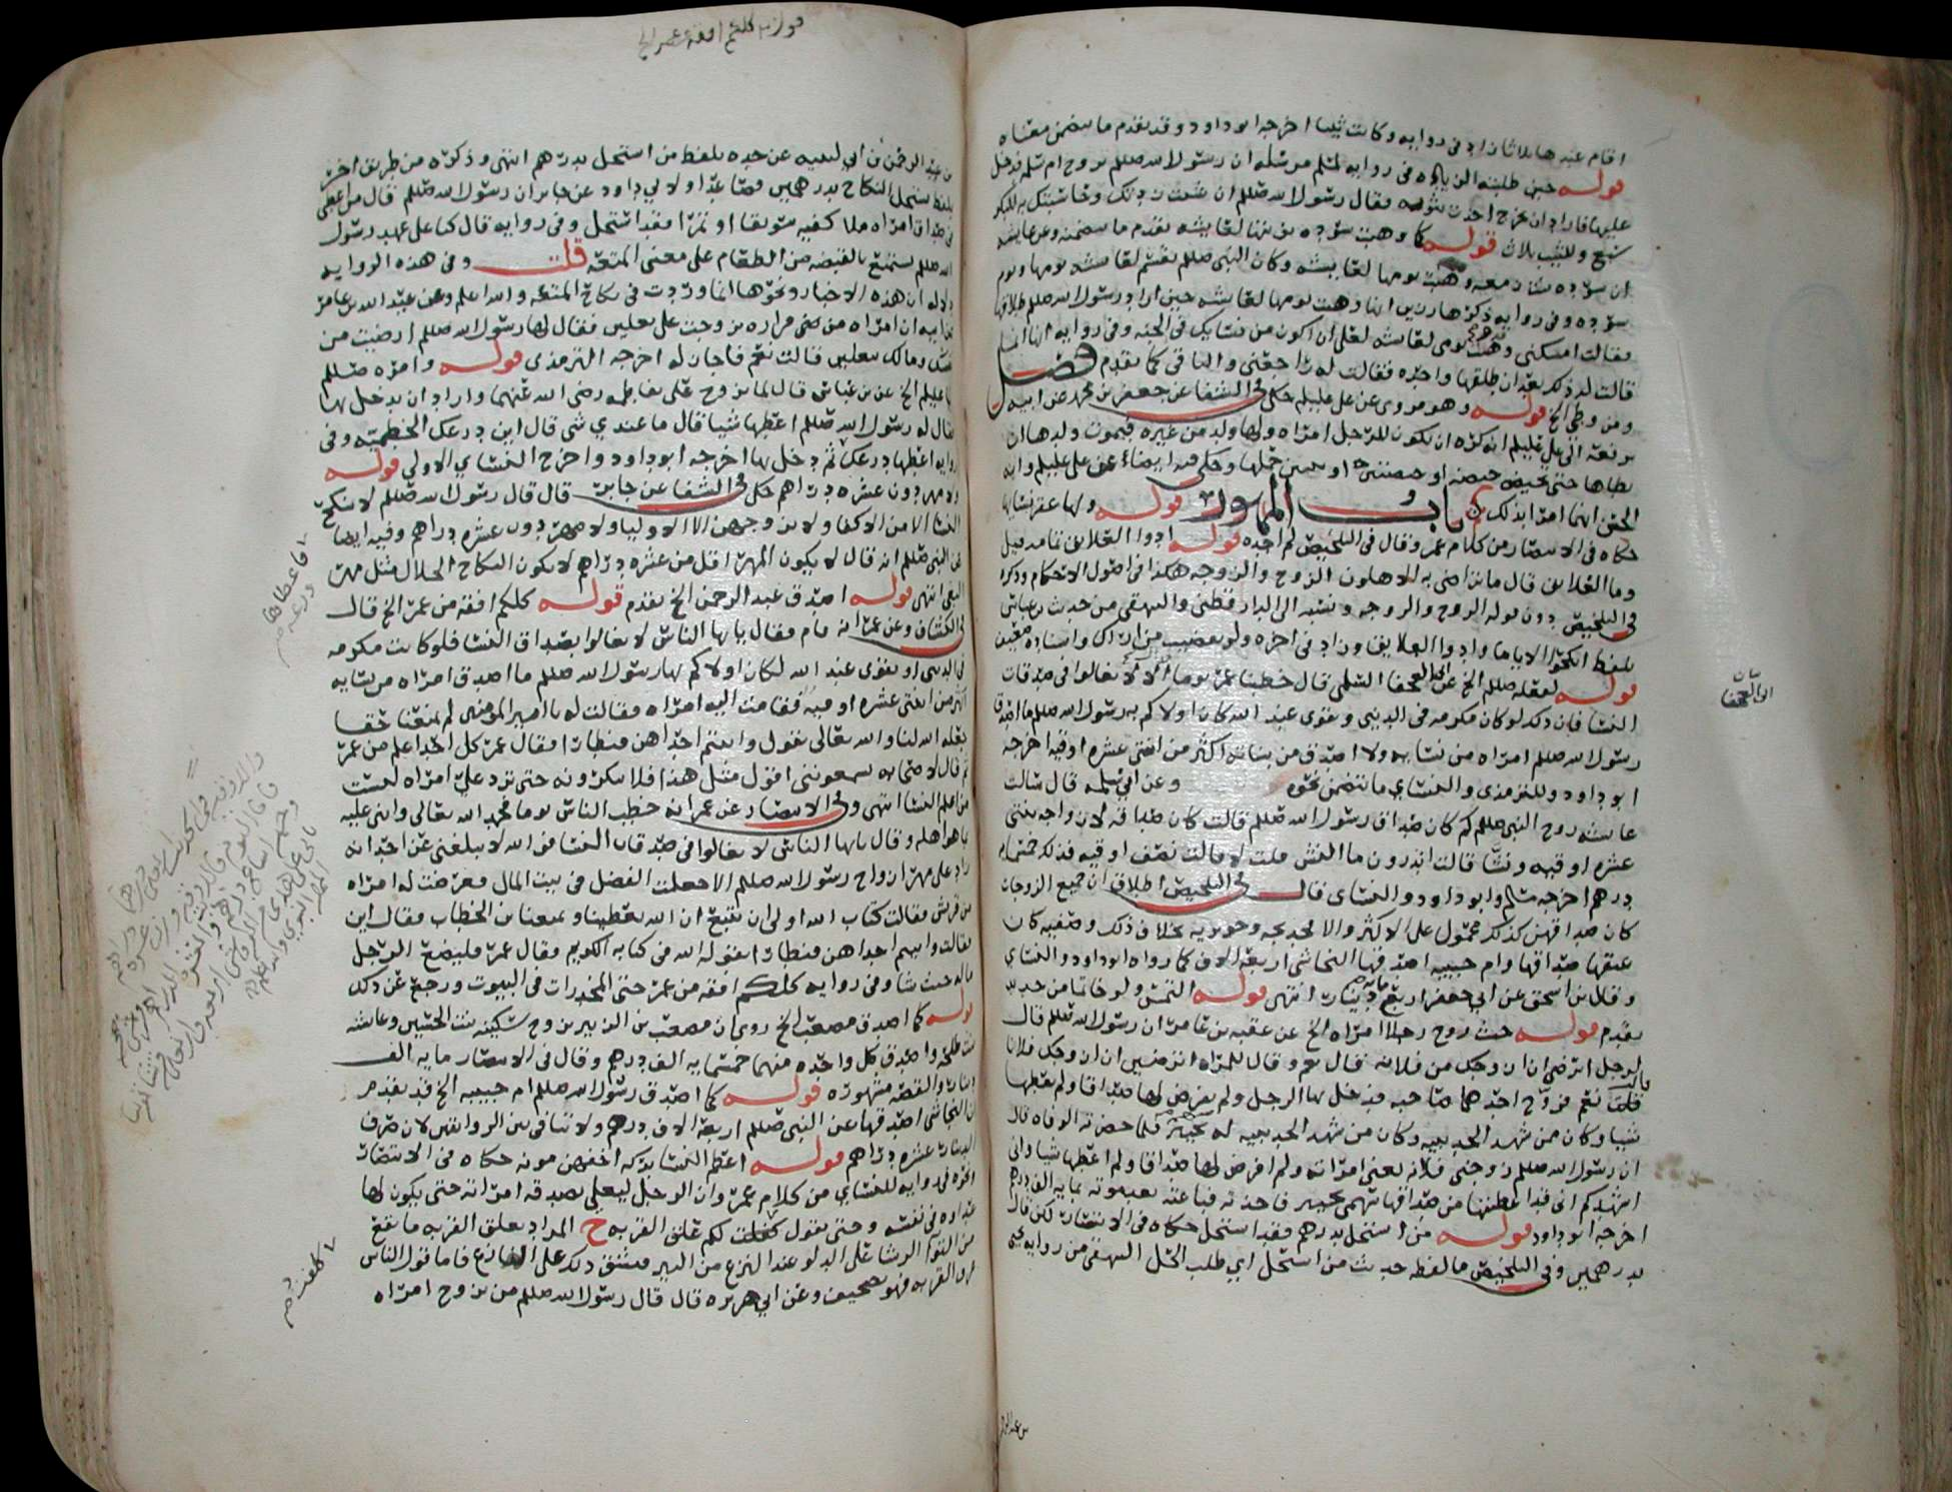 اقام عندها ثلاثا زاد في روايه وكانت ثيبا اخرجه ابو داود وقد تقدم ما يتضمن معناه
قوله حين طلبته الزياده في روايه لمسلم مرسله ان رسول الله صللم تزوج ام سلمه فدخل
عليها فاراد ان يخرج اخذت بثوبه فقال رسول الله صللم ان شئت زدتك وحاسبتك به للبكر
سبع وللثيب ثلاث قوله كما وهبت سوده بنت زمعه لعايشه تقدم ما يتضمنه وعن عايشه
ان سوده بنت زمعه وهبت يومها لعايشه وكان النبي صللم يقسم لعايشه يومها ويوم
سوده وفي روايه ذكرها رزين انها وهبت يومها لعايشه حين اراد رسول الله صللم طلاقها
فقالت امسكني وقد وهبت يومي لعايشه لعلي ان اكون من نسايك في الجنه وفي روايه انها انما
قالت له ذلك بعد ان طلقها واحده فقالت له راجعني والباقي كما تقدم فصل
ومن وطي الخ قوله وهو مروي عن علي عليلم حكى في الشفا عن جعفر بن محمد عن ابيه
يرفعه الى علي عليلم انه كره ان يكون للرجل امراه ولها ولد من غيره فيموت ولدها ان
يطاها حتى تحيض حيضه او حيضتين او يتبين حملها وحكى فيه ايضا عن علي عليلم وابنه
الحسن انهما امرا بذلك باب المهور قوله ولها عقر نسايها
حكاه في الانتصار من كلام عمر وقال في التلخيص لم اجده قوله ادوا العلايق تمامه قيل
وما العلايق قال ما تراضى به الاهلون الزوج والزوجه هكذا في اصول الاحكام وذكره
في التلخيص دون قوله الزوج والزوجه ونسبه الى الدارقطني والبيهقي من حديث ابن عباس
بلفظ انكحوا الايامى وادوا العلايق وزاد في اخره ولو بقضيب من اراك واسناده ضعيف
قوله لفعله صللم الخ عن ابي العجفا السلمي قال خطبنا عمر يوما الا لا تغالوا في صدقات
النسا فان ذلك لو كان مكرمه في الدنيا وتقوى عند الله كان اولاكم به رسول الله صللم ما اصدق
رسول الله صللم امراه من نسايه ولا اصدق من بناته اكثر من اثنتي عشره اوقيه اخرجه
ابو داود وللترمذي والنساي ما يتضمن نحوه وعن ابي سلمه قال سالت
عايشه زوج النبي صللم كم كان صداق رسول الله صللم قالت كان صداقه لازواجه اثنتي
عشره اوقيه ونشا قالت اتدرون ما النش قلت لا قالت نصف اوقيه فذلك خمسمايه
درهم اخرجه مسلم وابو داود والنساي قال في التلخيص اطلاق ان جميع الزوجات
كان صداقهن كذلك محمول على الاكثر والا فخديجه وجويريه بخلاف ذلك وصفيه كان
عتقها صداقها وام حبيبه اصدقها النجاشي اربعة الاف كما رواه ابو داود والنساي
وقال بن اسحق عن ابي جعفر اربع مايه دينار انتهى قوله التمس ولو خاتما من حديد
تقدم قوله حيث زوج رجلا امراه الخ عن عقبه بن عامر ان رسول الله صللم قال
لرجل اترضى ان ازوجك من فلانه قال نعم وقال للمراه اترضين ان ازوجك فلانا
قالت نعم فزوج احدهما صاحبه فدخل بها الرجل ولم يفرض لها صداقا ولم يعطها
شيا وكان ممن شهد الحديبيه وكان من شهد الحديبيه له سهم بخيبر فلما حضرته الوفاه قال
ان رسول الله صللم زوجني فلانه يعني امراته ولم افرض لها صداقا ولم اعطها شيا واني
اشهدكم اني قد اعطيتها من صداقها سهمي بخيبر فاخذته فباعته بعد موته بمايه الف درهم
اخرجه ابو داود قوله من استحل بدرهم فقد استحل حكاه في الانتصار لكن قال
بدرهمين وفي التلخيص ما لفظه حديث من استحل اي طلب الحل البيهقي من روايه يحيى
بن عبد الرحمن
ابي العجفا
قوله كلكم افقه من عمر الخ
بن عبد الرحمن بن ابي لبيبه عن جده بلفظ من استحل بدرهم انتهى وذكره من طريق اخرى
بلفظ يستحل النكاح بدرهمين فصاعدا ولابي داود عن جابر ان رسول الله صللم قال من اعطى
في صداق امراه ملا كفيه سويقا او تمرا فقد استحل وفي روايه قال كنا على عهد رسول
الله صللم نستمتع بالقبضه من الطعام على معنى المتعه قلت وفي هذه الروايه
دلاله ان هذه الاخبار ونحوها انما وردت في نكاح المتعه والله اعلم وعن عبد الله بن عامر
عن ابيه ان امراه من بني فزاره تزوجت على نعلين فقال لها رسول الله صللم ارضيت من
نفسك ومالك بنعلين قالت نعم فاجازه اخرجه الترمذي قوله وامره صللم
عليا عليلم الخ عن بن عباس قال لما تزوج علي بفاطمه رضي الله عنهما واراد ان يدخل بها
قال له رسول الله صللم اعطها شيا قال ما عندي شي قال اين درعك الحطميه وفي
روايه اعطها درعك ثم دخل بها اخرجه ابو داود واخرج النساي الاولى قوله
ولا مهر دون عشره دراهم حكى في الشفا عن جابر قال قال رسول الله صللم لا تنكح
النسا الا من الاكفا ولا يزوجهن الا الاوليا ولا مهر دون عشره دراهم وفيه ايضا
عن النبي صللم انه قال لا يكون المهر اقل من عشره دراهم لا يكون النكاح الحلال مثل مهر
البغي انتهى قوله اصدق عبد الرحمن الخ تقدم قوله كلكم افقه من عمر الخ قال
في الكشاف وعن عمر انه قام فقال يايها الناس لا تغالوا بصداق النسا فلو كانت مكرمه
في الدنيا او تقوى عند الله لكان اولاكم بها رسول الله صللم ما اصدق امراه من نسايه
اكثر من اثنتي عشره اوقيه فقامت اليه امراه فقالت له يا امير المومنين لم تمنعنا حقا
جعله الله لنا والله تعالى يقول واتيتم احداهن قنطارا فقال عمر كل احد اعلم من عمر
ثم قال لاصحابه تسمعونني اقول مثل هذا فلا تنكرونه حتى ترد علي امراه ليست
من اعلم النسا انتهى وفي الانتصار عن عمر انه خطب الناس يوما فحمد الله تعالى واثنى عليه
بما هو اهله وقال يايها الناس لا تغالوا في صدقات النسا فوالله لا يبلغني عن احد انه
زاد على مهر ازواج رسول الله صللم الا جعلت الفضل في بيت المال فعرضت له امراه
من قريش فقالت كتاب الله اولى ان يتبع ان الله يعطينا ويمنعنا بن الخطاب فقال اين
فقالت واتيتم احداهن قنطارا بقوله الله في كتابه الكريم فقال عمر فليضع الرجل
ماله حيث شا وفي روايه كلكم افقه من عمر حتى المخدرات في البيوت ورجع عن ذلك
قوله كما اصدق مصعب الخ روي ان مصعب بن الزبير تزوج سكينه بنت الحسين وعايشه
بنت طلحه واصدق كل واحده منهما خمسمايه الف درهم وقال في الانتصار مايه الف
دينار والقصه مشهوره قوله كما اصدق رسول الله صللم ام حبيبه الخ قد تقدم
ان النجاشي اصدقها عن النبي صللم اربعة الاف درهم ولا تنافي بين الروايتين لان صرف
الدينار عشره دراهم قوله اعظم النسا بركه اخفهن مونه حكاه في الانتصار
اخره في روايه للنساي من كلام عمر وان الرجل ليغلي بصدقه امراته حتى يكون لها
عداوه في نفسه وحتى يقول كلفت لكم علق القربه ح المراد بعلق القربه ما يقع
من التوا الرشا على الدلو عند النزع من البير فيشق ذلك على النازع فاما قول الناس
عرق القربه فهو تصحيف وعن ابي هريره قال قال رسول الله صللم من تزوج امراه
فاعطاها درعه
كلفت